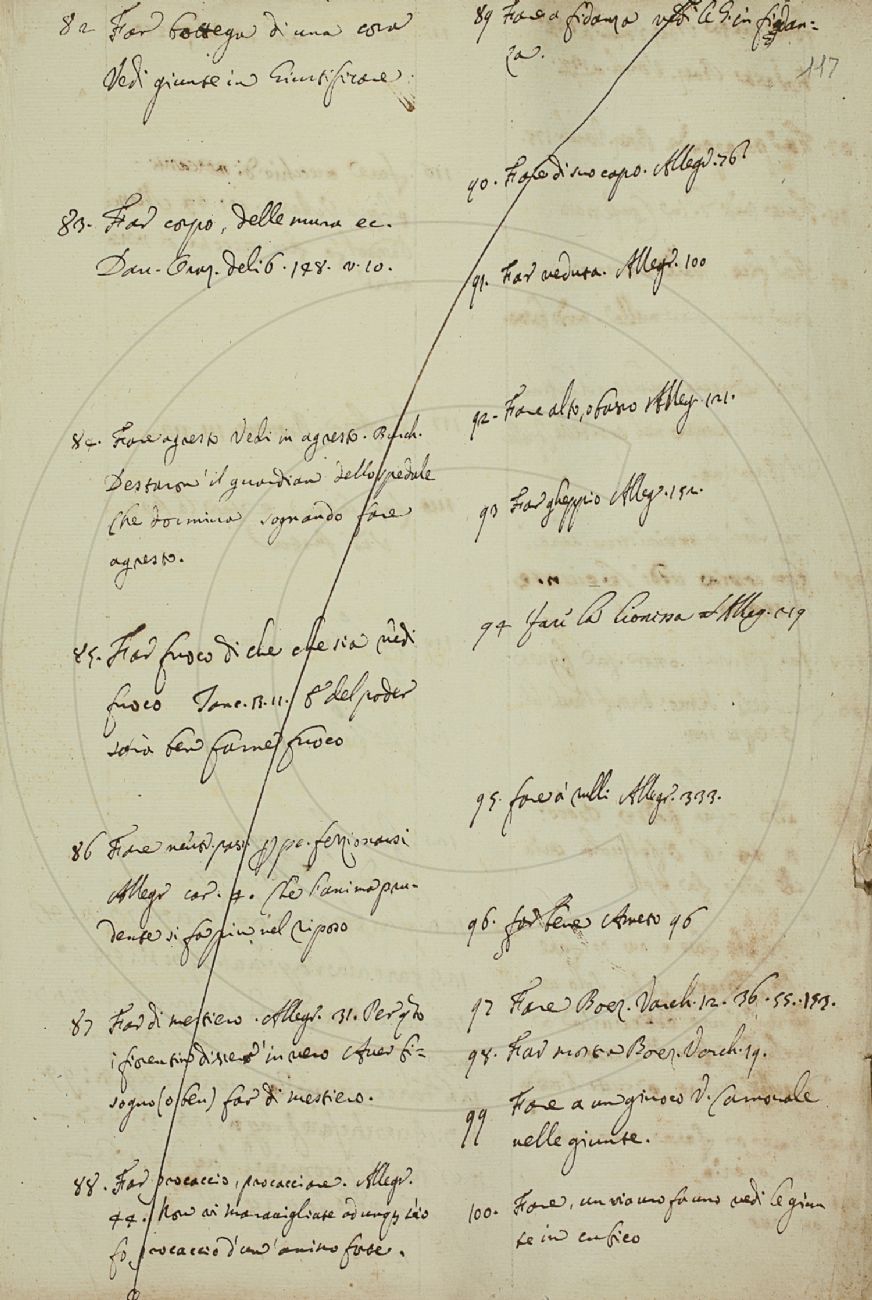 82 Far bottega di una cosa
Vedi giunte in Giustificare
83. Far corpo, delle mura ec.
Dav. Oraz. delib. 148. v. 10.
84. Fare agresto Vedi in agresto. Burch.
Destaron' il guardian dello spedale
che dormiva sognando fare
agresto.
85. Far fuoco di che che sia vedi
fuoco Tanc. 13. 11. E del poder
saria ben farne fuoco
86 Fare neut. pass. p perfezionarsi
Allegr car. 4. Che l'anima pru-
dente si fa più nel riposo
87 Far di mestiero. Allegr. 31. Per qto
i fiorentin dissero in vero Aver bi=
sogno (o ben) far di mestiero.
88. Far procaccio, procacciare. Allegr.
44. Non vi maravigliate adunq; s'io
fò procaccio d'un' amino fate.
89 Fare a fidanza vedi le G. in fidan=
za.
117
90. Fare di suo capo. Allegr. 76.
91. Far veduta. Allegr. 100
92. Fare alto, o basso Alleg. 121.
93 Far gheppio Alleg. 152.
94 fare la lionessa Alleg. 219
95. fare à rulli Allegr. 333.
96. far bene Ameto 96
97 Fare Boez. Varch. 12. 36. 55. 153.
98. Far mostra Boez. Varch. 19.
99 Fare a un giuoco V. Carnovale
nelle giunte.
100. Fare, un viano fa uno vedi le giun
te in cubico